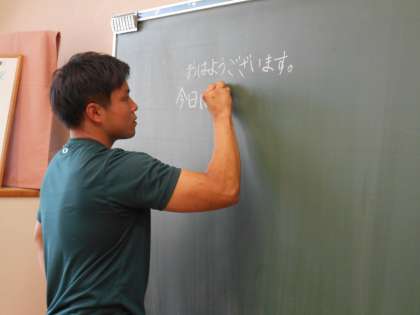 おはようございます。
今日は